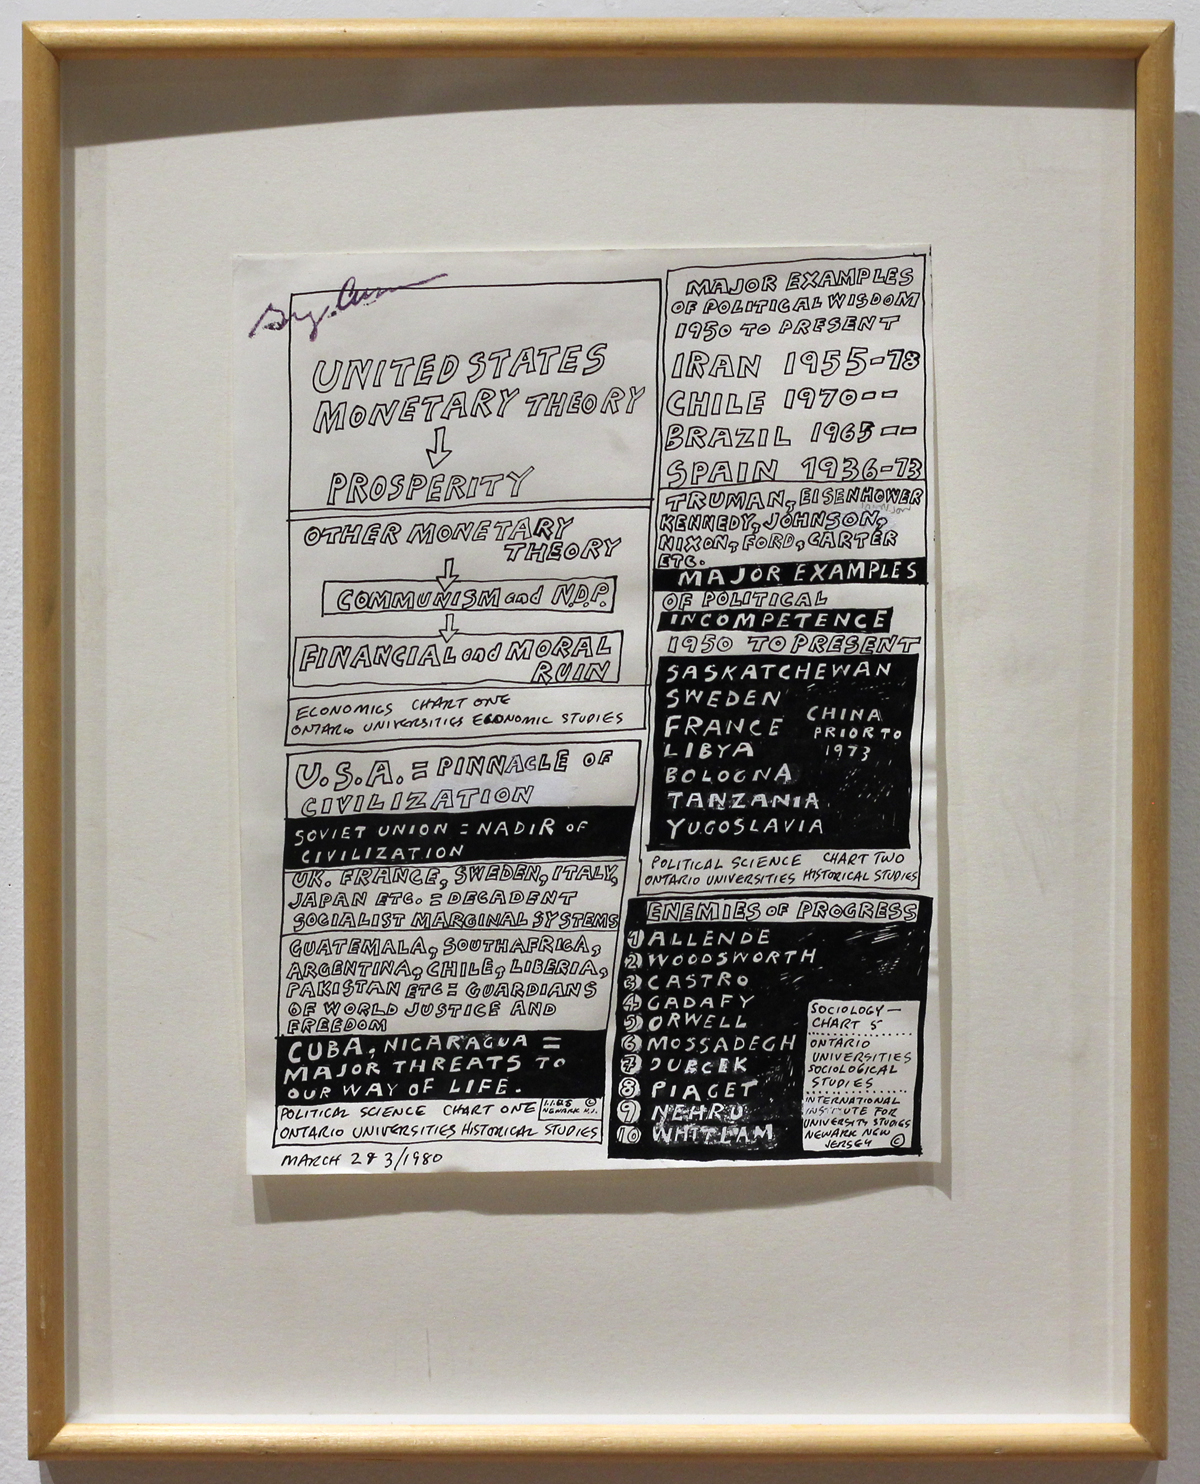 UNITED STATES
MONETARY THEORY
PROSPERITY
OTHER MONETARY
THEORY
COMMUNISM and N.D.P.
FINANCIAL and MORAL
RUIN
ECONOMICS CHART ONE
ONTARIO UNIVERSITIES ECONOMIC STUDIES
U.S.A. = PINNACLE OF
CIVILIZATION
SOVIET UNION = NADIR OF
CIVILIZATION
UK. FRANCE, SWEDEN, ITALY,
JAPAN ETC. = DECADENT
SOCIALIST MARGINAL SYSTEMS
GUATEMALA, SOUTH AFRICA,
ARGENTINA, CHILE, LIBERIA,
PAKISTAN ETC = GUARDIANS
OF WORLD JUSTICE AND
FREEDOM
CUBA, NICARAGUA =
MAJOR THREATS TO
OUR WAY OF LIFE.
POLITICAL SCIENCE CHART ONE
I.I.U.S ©
NEWARK N.J.
ONTARIO UNIVERSITIES HISTORICAL STUDIES
MARCH 2 & 3/1980
MAJOR EXAMPLES
OF POLITICAL WISDOM
1950 TO PRESENT
IRAN 1955-78
CHILE 1970--
BRAZIL 1965--
SPAIN 1936-73
TRUMAN, EISENHOWER
KENNEDY, JOHNSON,
NIXON, FORD, CARTER
ETC.
MAJOR EXAMPLES
OF POLITICAL
INCOMPETENCE
1950 TO PRESENT
SASKATCHEWAN
SWEDEN
FRANCE
LIBYA
BOLOGNA
TANZANIA
YUGOSLAVIA
CHINA
PRIOR TO
1973
POLITICAL SCIENCE CHART TWO
ONTARIO UNIVERSITIES HISTORICAL STUDIES
ENEMIES OF PROGRESS
1 ALLENDE
2 WOODSWORTH
3 CASTRO
4 GADAFY
5 ORWELL
6 MOSSADEGH
7
8 PIAGET
9 NEHRU
10 WHITLAM
SOCIOLOGY—
CHART 5
ONTARIO
UNIVERSITIES
SOCIOLOGICAL
STUDIES
INTERNATIONAL
INSTITUTE FOR
UNIVERSITY STUDIES
NEWARK NEW
JERSEY ©